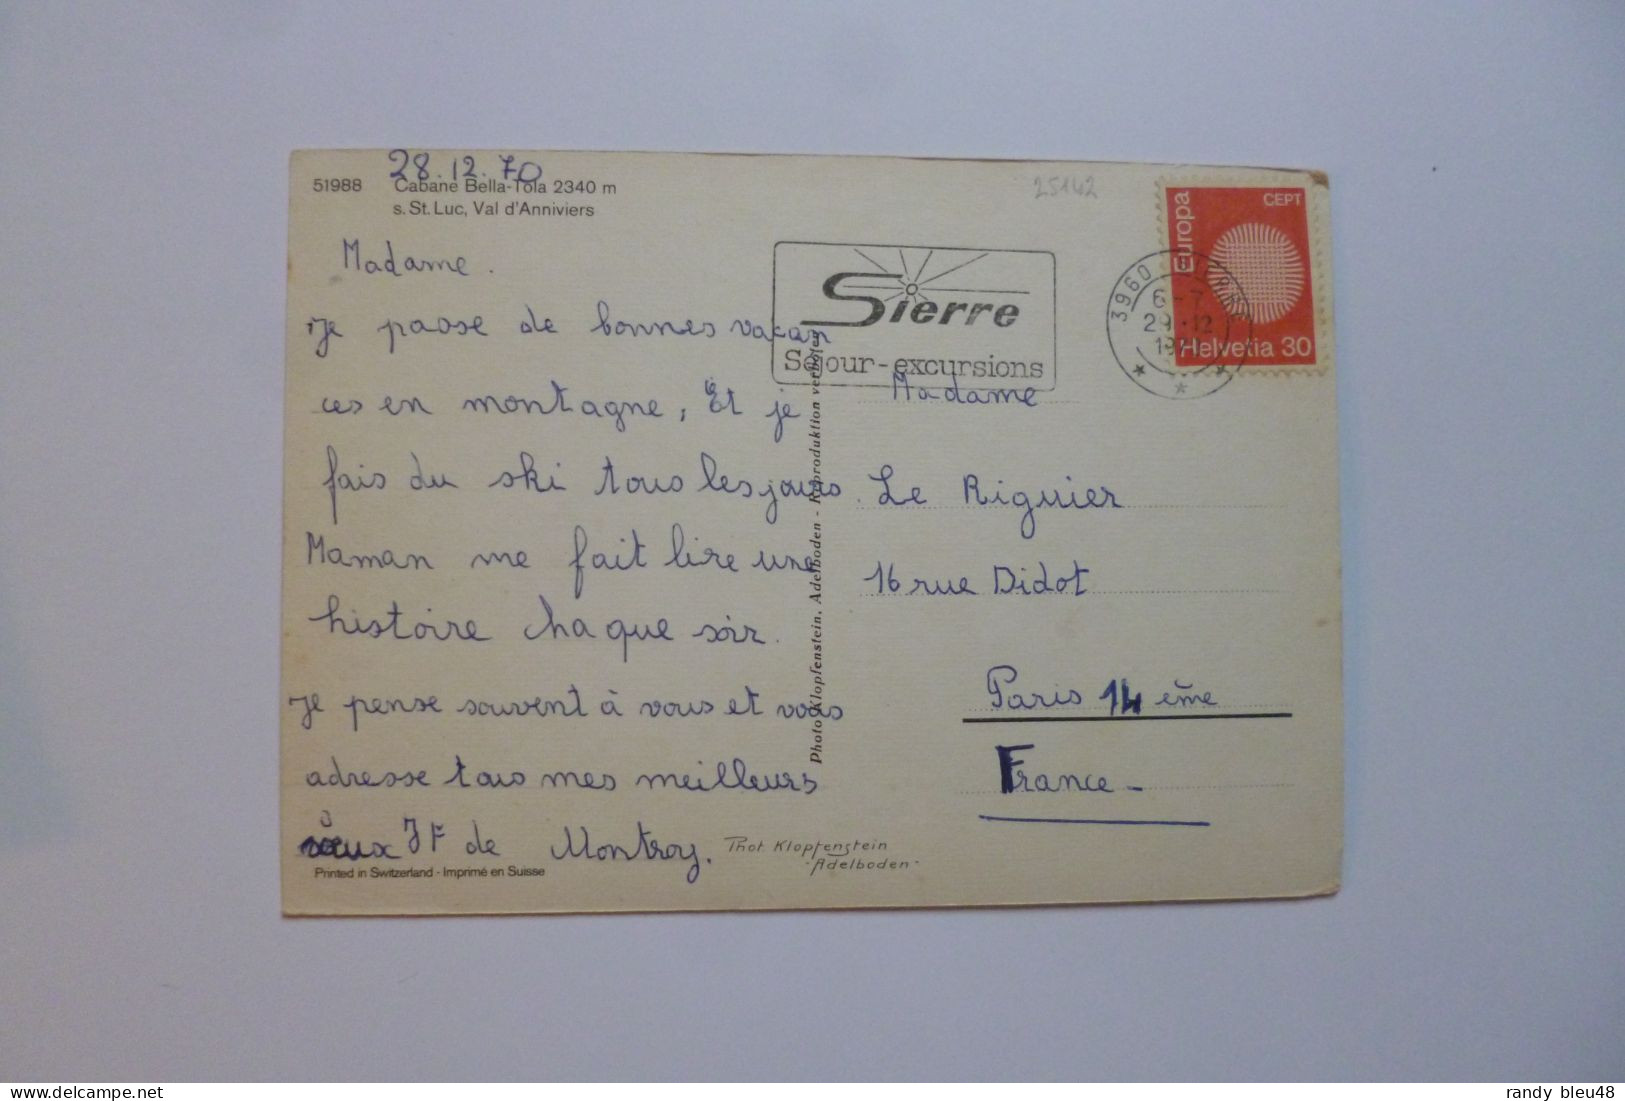 28.12.70
51988 Cabane Bella-Tola 2340 m
s. St. Luc, Val d'Anniviers
25142
Madame.
Je passe de bonnes vacan
ces en montagne, Et je
fais du ski tous les jours.
Maman me fait lire une
histoire chaque soir.
Je pense souvent à vous et vous
adresse tous mes meilleurs
vœux JF de Montroy.
Printed in Switzerland - Imprimé en Suisse
Phot. Klopfenstein
-Adelboden-
Photo Klopfenstein, Adelboden - Reproduktion verboten
Sierre
Séjour-excursions
3960
6-7
29.12
1970
Europa
CEPT
Helvetia 30
Madame
Le Riguier
16 rue Didot
Paris 14 ème
France -
randy_bleu48